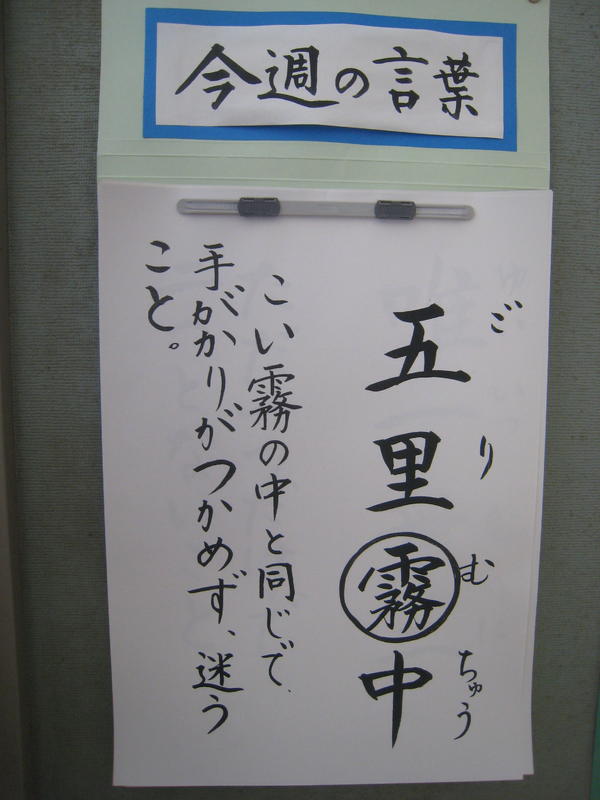 今週の言葉
五里霧中
ごりむちゅう
こい霧の中と同じで、
手がかりがつかめず、迷う
こと。